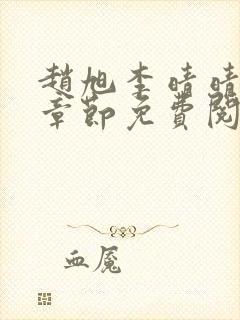 趙旭李晴晴
章節免費閱
血魘